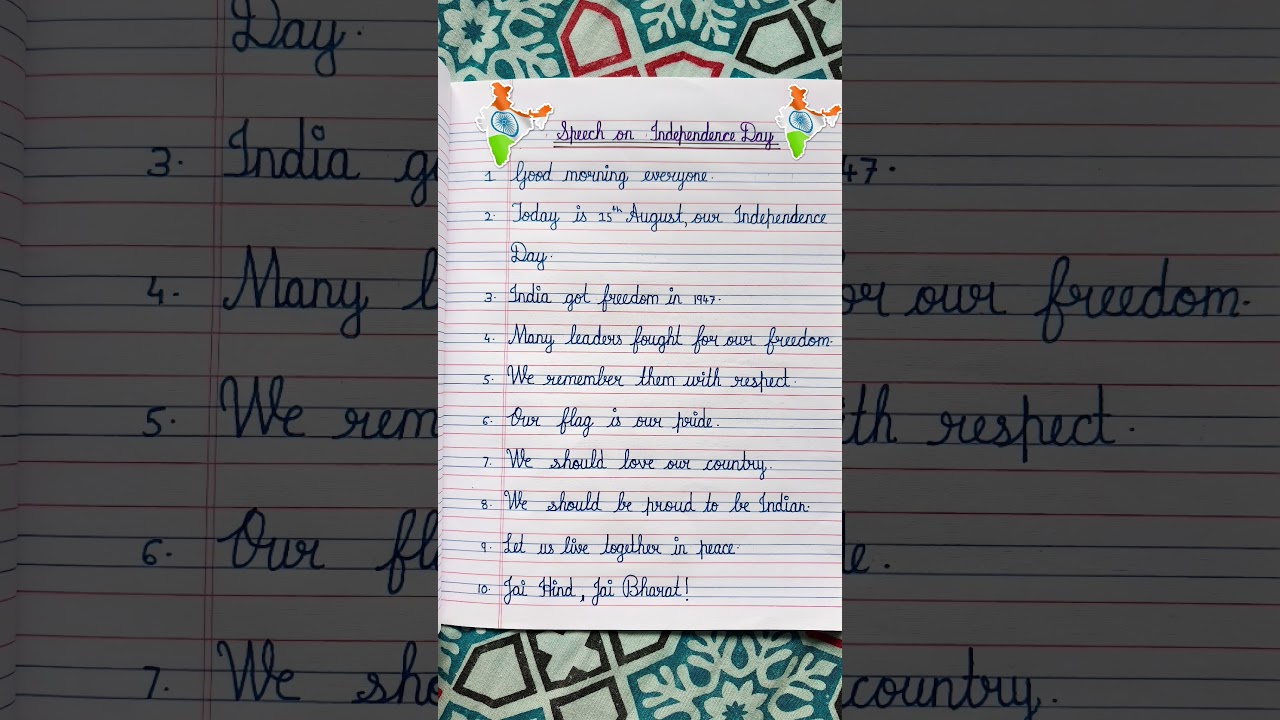 Speech on Independence Day
1 Good morning everyone.
2. Today is 15th August, our Independence
Day.
3. India got freedom in 1947.
4. Many leaders fought for our freedom.
5. We remember them with respect.
6. Our flag is our pride.
7. We should love our country.
8. We should be proud to be Indian.
9. Let us live together in peace.
10. Jai Hind, Jai Bharat!